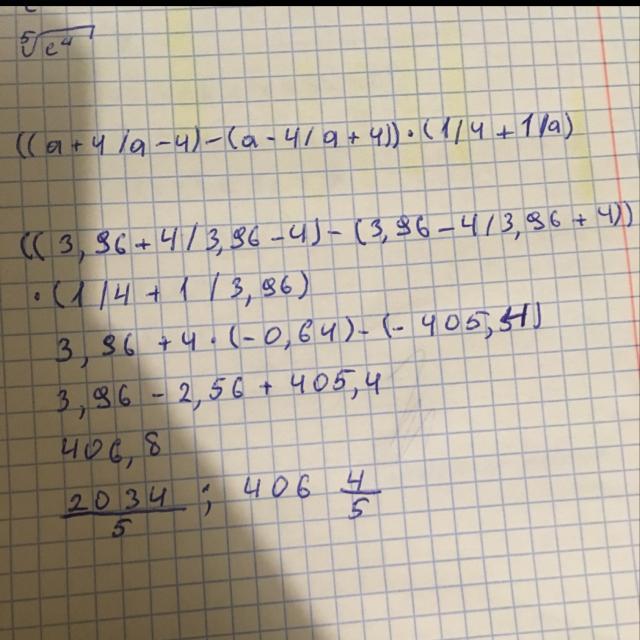 ⁵√c⁴
((a+4/a-4)-(a-4/a+4))·(1/4+1/a)
((3,96+4/3,96-4)-(3,96-4/3,96+4))
·(1/4+1/3,96)
3,96+4·(-0,64)-(-405,4)
3,96-2,56+405,4
406,8
2034/5; 406 4/5